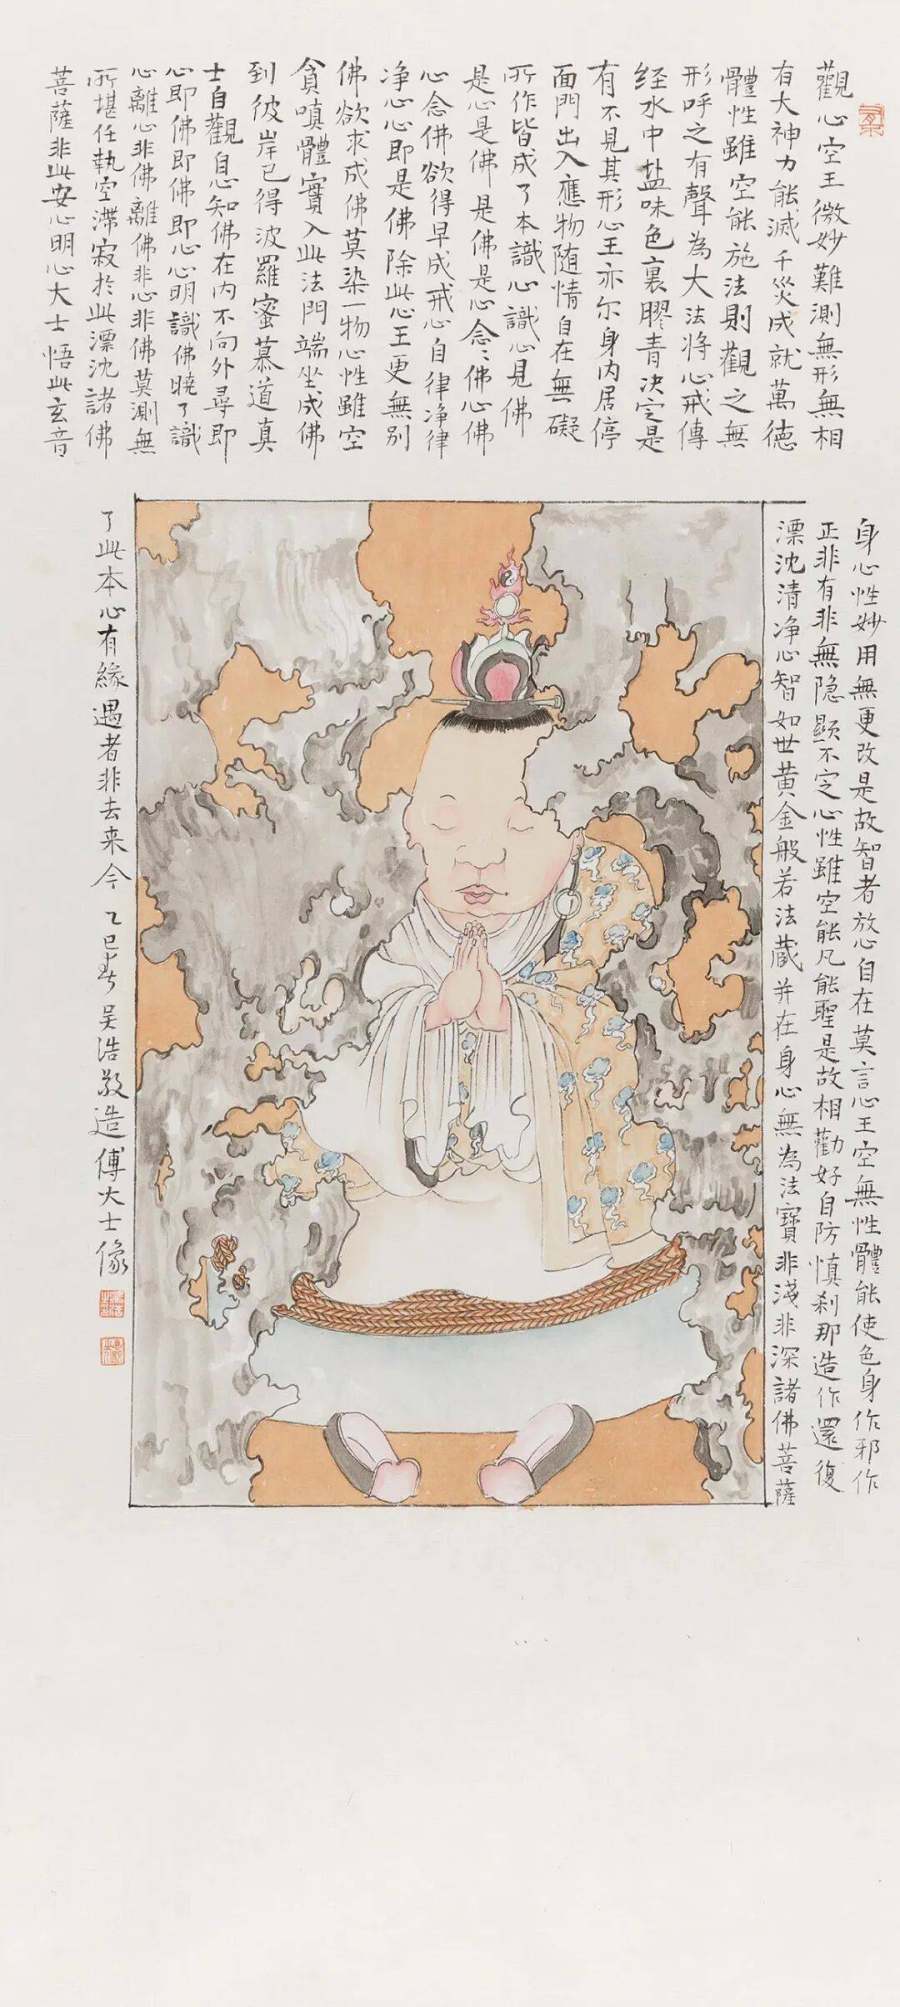 觀心空王微妙難測無形無相
有大神力能滅千災成就萬徳
體性雖空能施法則觀之無
形呼之有聲為大法將心戒傳
经水中盐味色裏膠青决定是
有不見其形心王亦尔身內居停
面門出入應物随情自在無礙
所作皆成了本識心識心見佛
是心是佛是佛是心念〻佛心佛
心念佛欲得早成戒心自律净律
净心心即是佛除此心王更無别
佛欲求成佛莫染一物心性雖空
貪嗔體實入此法門端坐成佛
到彼岸已得波羅蜜慕道真
士自觀自心知佛在內不向外尋即
心即佛即佛即心心明識佛曉了識
心離心非佛離佛非心非佛莫測無
所堪任執空滯寂於此漂沈諸佛
菩薩非此安心明心大士悟此玄音
身心性妙用無更改是故智者放心自在莫言心王空無性體能使色身作邪作
正非有非無隐顯不定心性雖空能凡能聖是故相勸好自防慎刹那造作還復
漂沈清净心智如世黄金般若法藏并在身心無為法寶非淺非深諸佛菩薩
了此本心有緣遇者非去来今 乙巳春吴浩敬造傅大士像